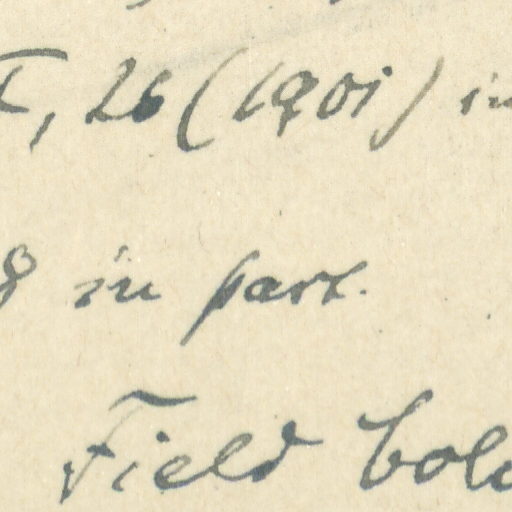 , 26 (1901) in
8 in part.
Field Colu